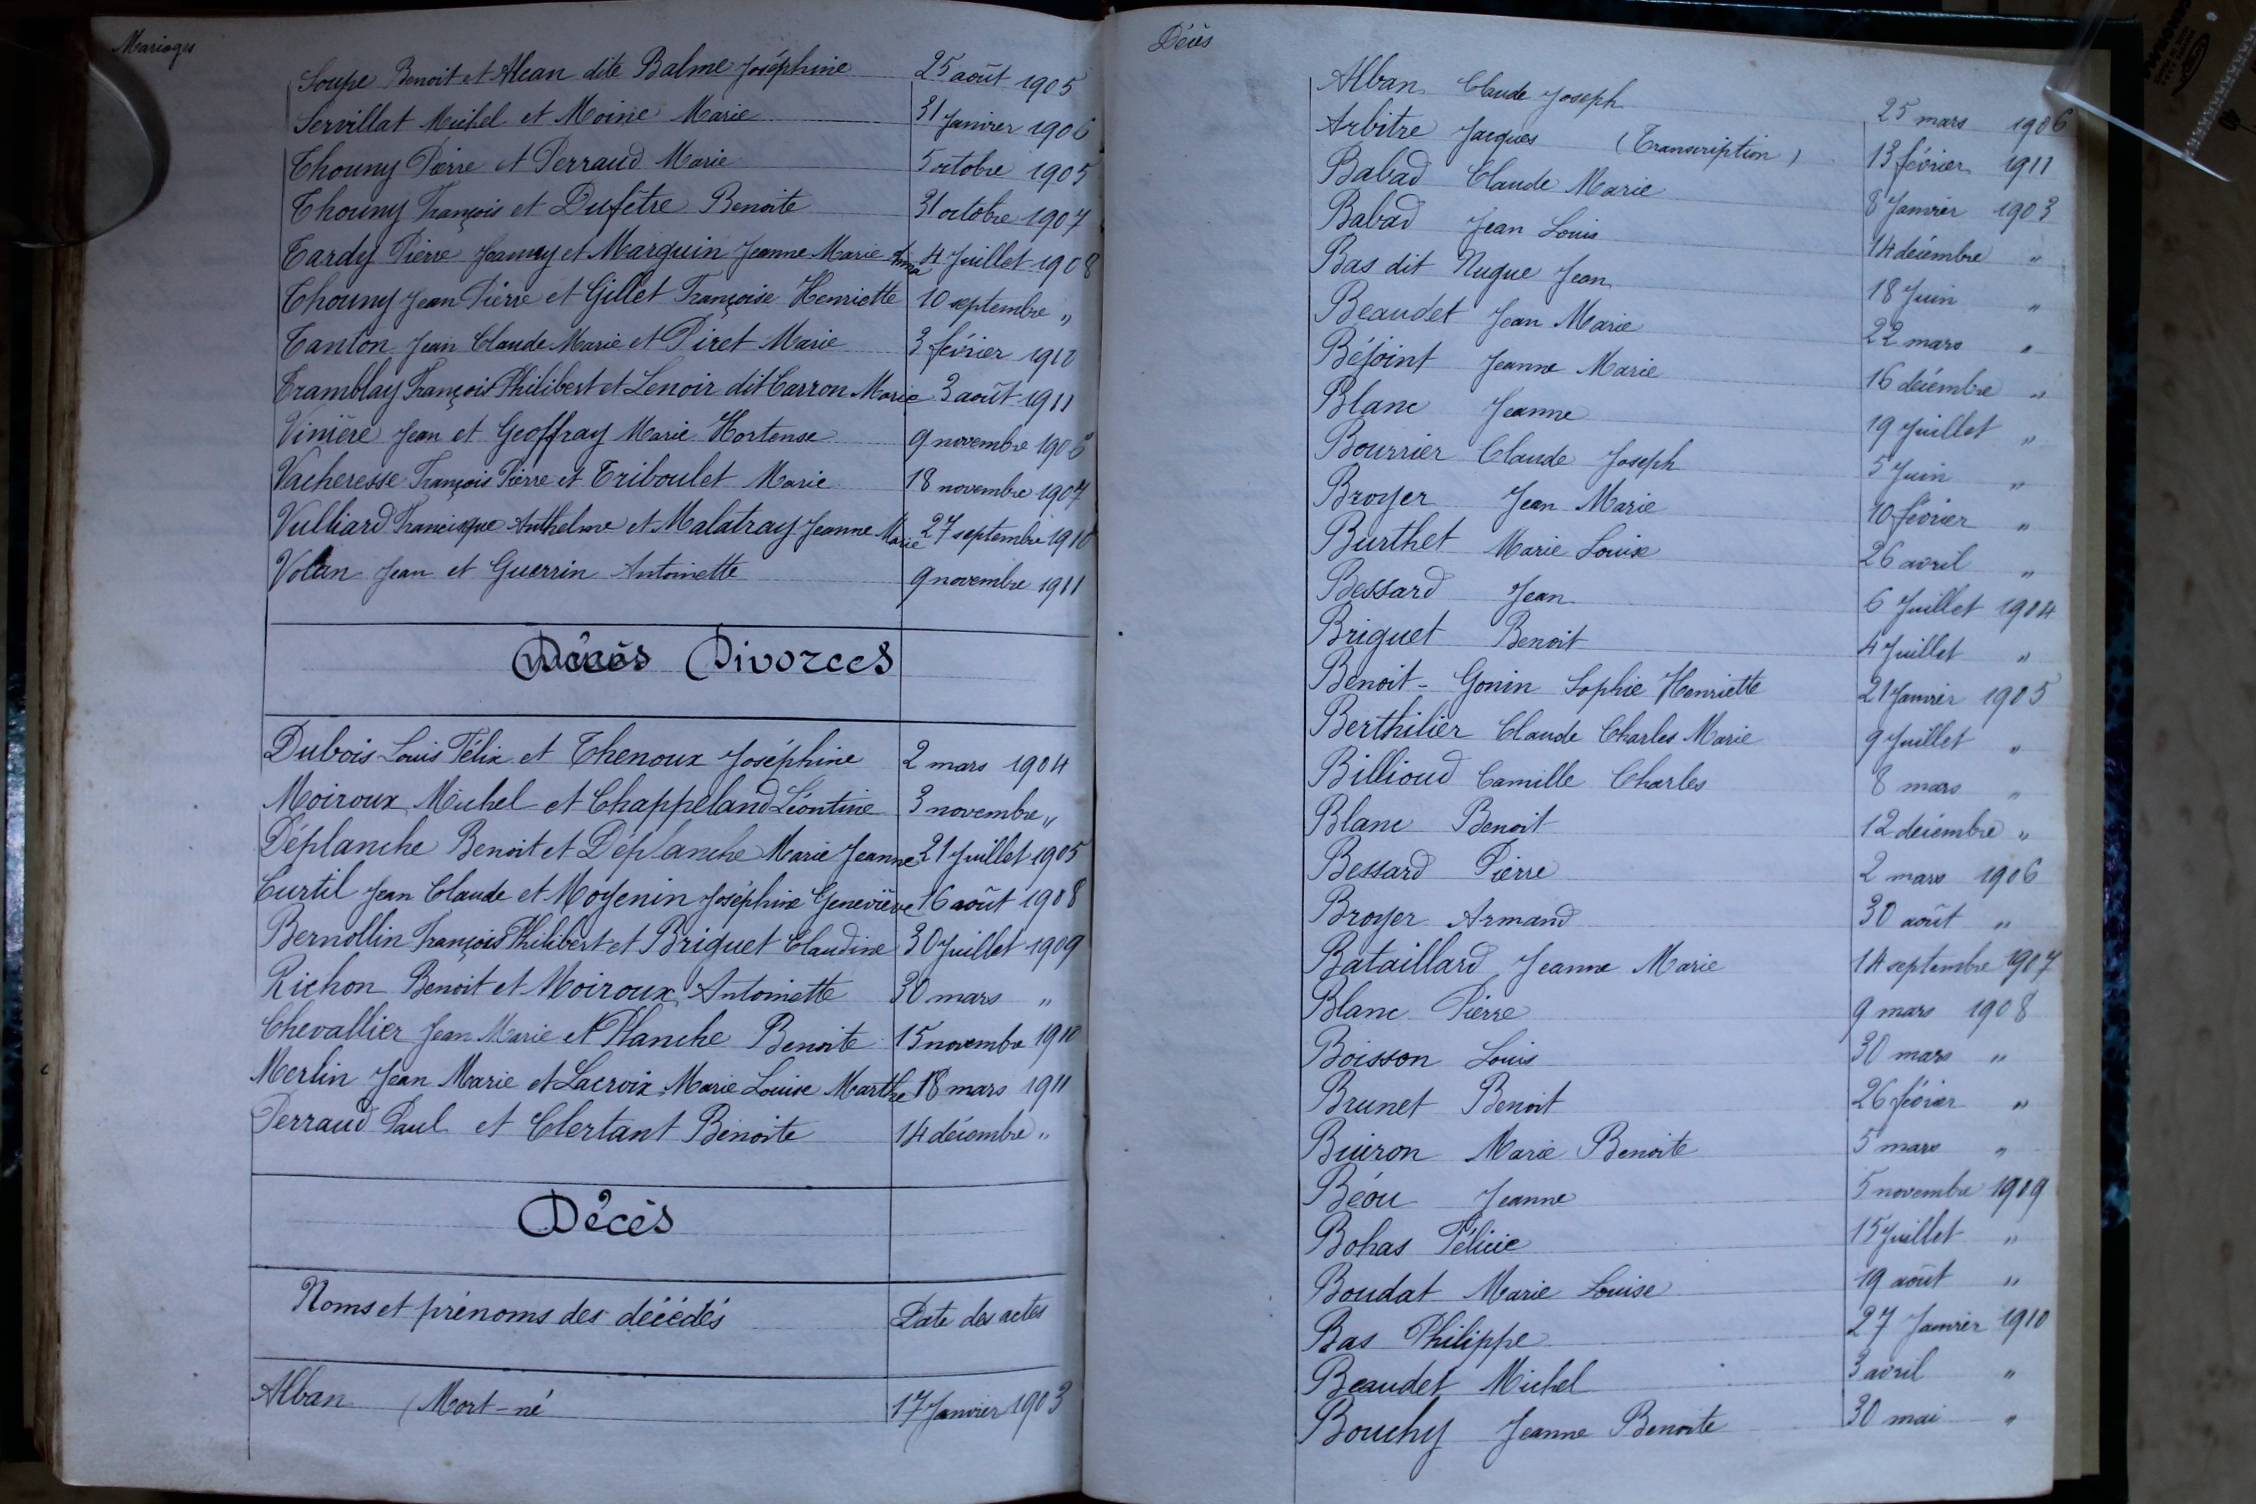 Mariages
Soupe Benoit et Alcan dite Balme Joséphine 25 août 1905
Servillat Michel et Moine Marie 31 Janvier 1906
Thouny Pierre et Perraud Marie 5 octobre 1905
Thouny François et Dufêtre Benoite 31 octobre 1907
Tardy Pierre Joanny et Marguin Jeanne Marie Anna 4 Juillet 1908
Thouny Jean Pierre et Gillet Françoise Henriette 10 septembre "
Tanton Jean Claude Marie et Piret Marie 3 février 1910
Tramblay François Philibert et Lenoir dit Carron Marie 3 août 1911
Vinière Jean et Geoffray Marie Hortense 9 novembre 1906
Vacheresse François Pierre et Triboulet Marie 18 novembre 1907
Vulliard Francisque Anthelme et Malatray Jeanne Marie 27 septembre 1910
Volan Jean et Guerrin Antoinette 9 novembre 1911
Décès Divorces
Dubois Louis Félix et Thenoux Joséphine 2 mars 1904
Moiroux Michel et Chappeland Léontine 3 novembre "
Déplanche Benoit et Déplanche Marie Jeanne 21 Juillet 1905
Curtil Jean Claude et Moyenin Joséphine Geneviève 16 août 1908
Bernollin François Philibert et Briguet Claudine 30 Juillet 1909
Richon Benoit et Moiroux Antoinette 30 mars "
Chevallier Jean Marie et Planche Benoite 15 novembre 1910
Merlin Jean Marie et Lacroix Marie Louise Marthe 18 mars 1911
Perraud Paul et Clertant Benoite 14 décembre "
Décès
Noms et prénoms des décédés Date des actes
Alban (Mort-né 17 Janvier 1903
Décès
Alban Claude Joseph 25 mars 1906
Arbitre Jacques (Transcription) 13 février 1911
Babad Claude Marie 8 Janvier 1903
Babad Jean Louis 14 décembre "
Bas dit Nugue Jean 18 Juin "
Beaudet Jean Marie 22 mars "
Béjoint Jeanne Marie 16 décembre "
Blanc Jeanne 19 Juillet "
Bourrier Claude Joseph 5 Juin "
Broyer Jean Marie 10 février "
Burthet Marie Louise 26 avril "
Bessard Jean 6 Juillet 1904
Briguet Benoit 4 Juillet "
Benoit-Gonin Sophie Henriette 21 Janvier 1905
Berthilier Claude Charles Marie 9 Juillet "
Billioud Camille Charles 8 mars "
Blanc Benoit 12 décembre "
Bessard Pierre 2 mars 1906
Broyer Armand 30 août "
Bataillard Jeanne Marie 14 septembre 1907
Blanc Pierre 9 mars 1908
Boisson Louis 30 mars "
Brunet Benoit 26 février "
Buiron Marie Benoite 5 mars "
Béou Jeanne 5 novembre 1909
Bohas Félicie 15 Juillet "
Boudat Marie Louise 19 août "
Bas Philippe 27 Janvier 1910
Beaudet Michel 3 avril "
Bouchy Jeanne Benoite 30 mai "